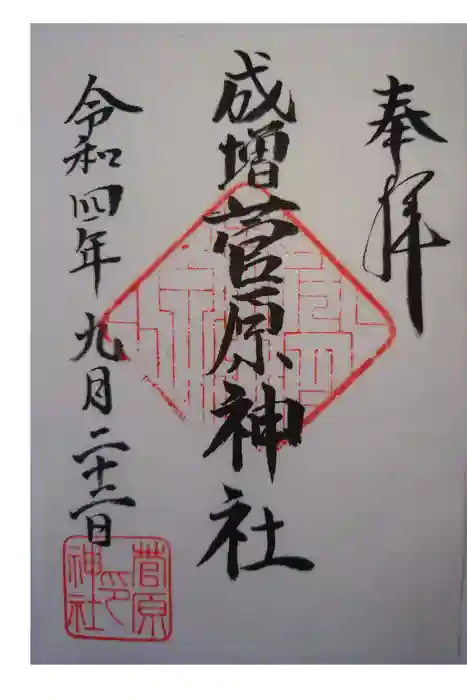 奉拝
成増菅原神社
令和四年九月二十二日
菅原
神社
印